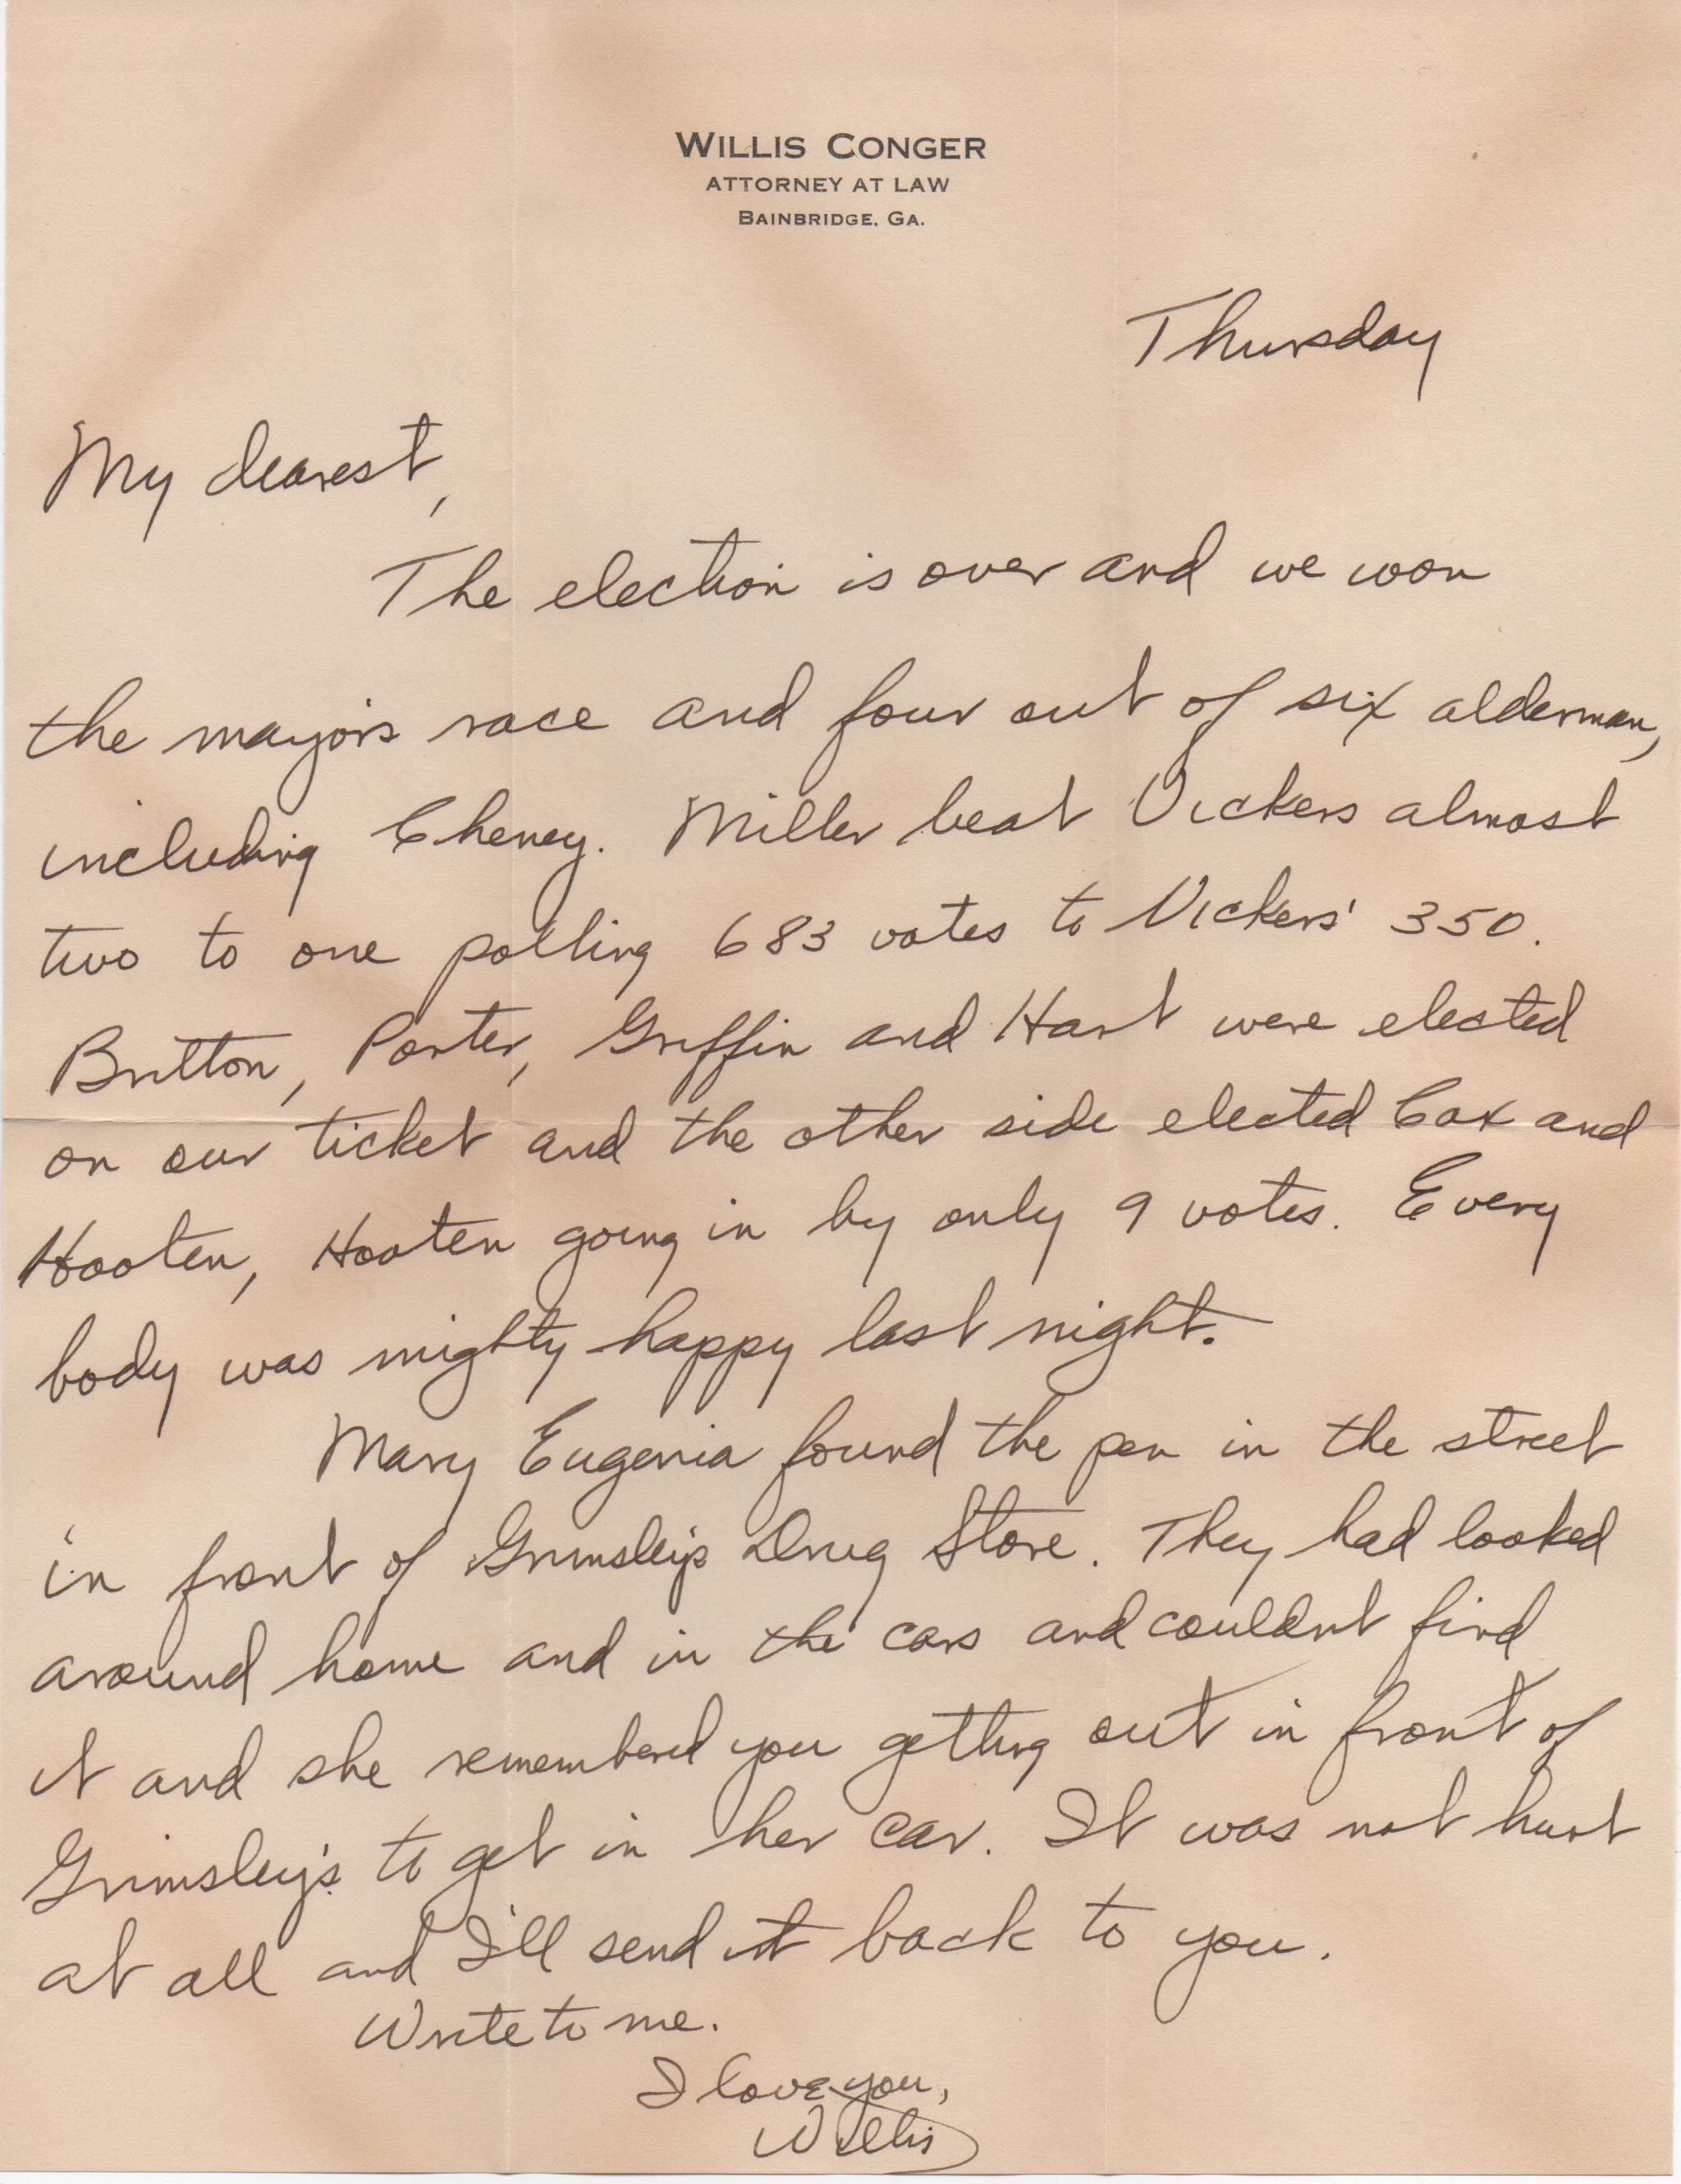 WILLIS CONGER
ATTORNEY AT LAW
BAINBRIDGE, GA.
Thursday
My dearest,
The election is over and we won
the mayors race and four out of six alderman,
including Cheney. Miller beat Vickers almost
two to one polling 683 votes to Vickers' 350.
Britton, Porter, Griffin and Hart were elected
on our ticket and the other side elected Cox and
Hooten, Hooten going in by only 9 votes. Every
body was mighty happy last night.
Mary Eugenia found the pen in the street
in front of Grimsley's Drug Store. They had looked
around home and in the cars and couldnt find
it and she remembered you getting out in front of
Grimsley's to get in her car. It was not hurt
at all and I'll send it back to you.
Write to me.
I love you,
Willis